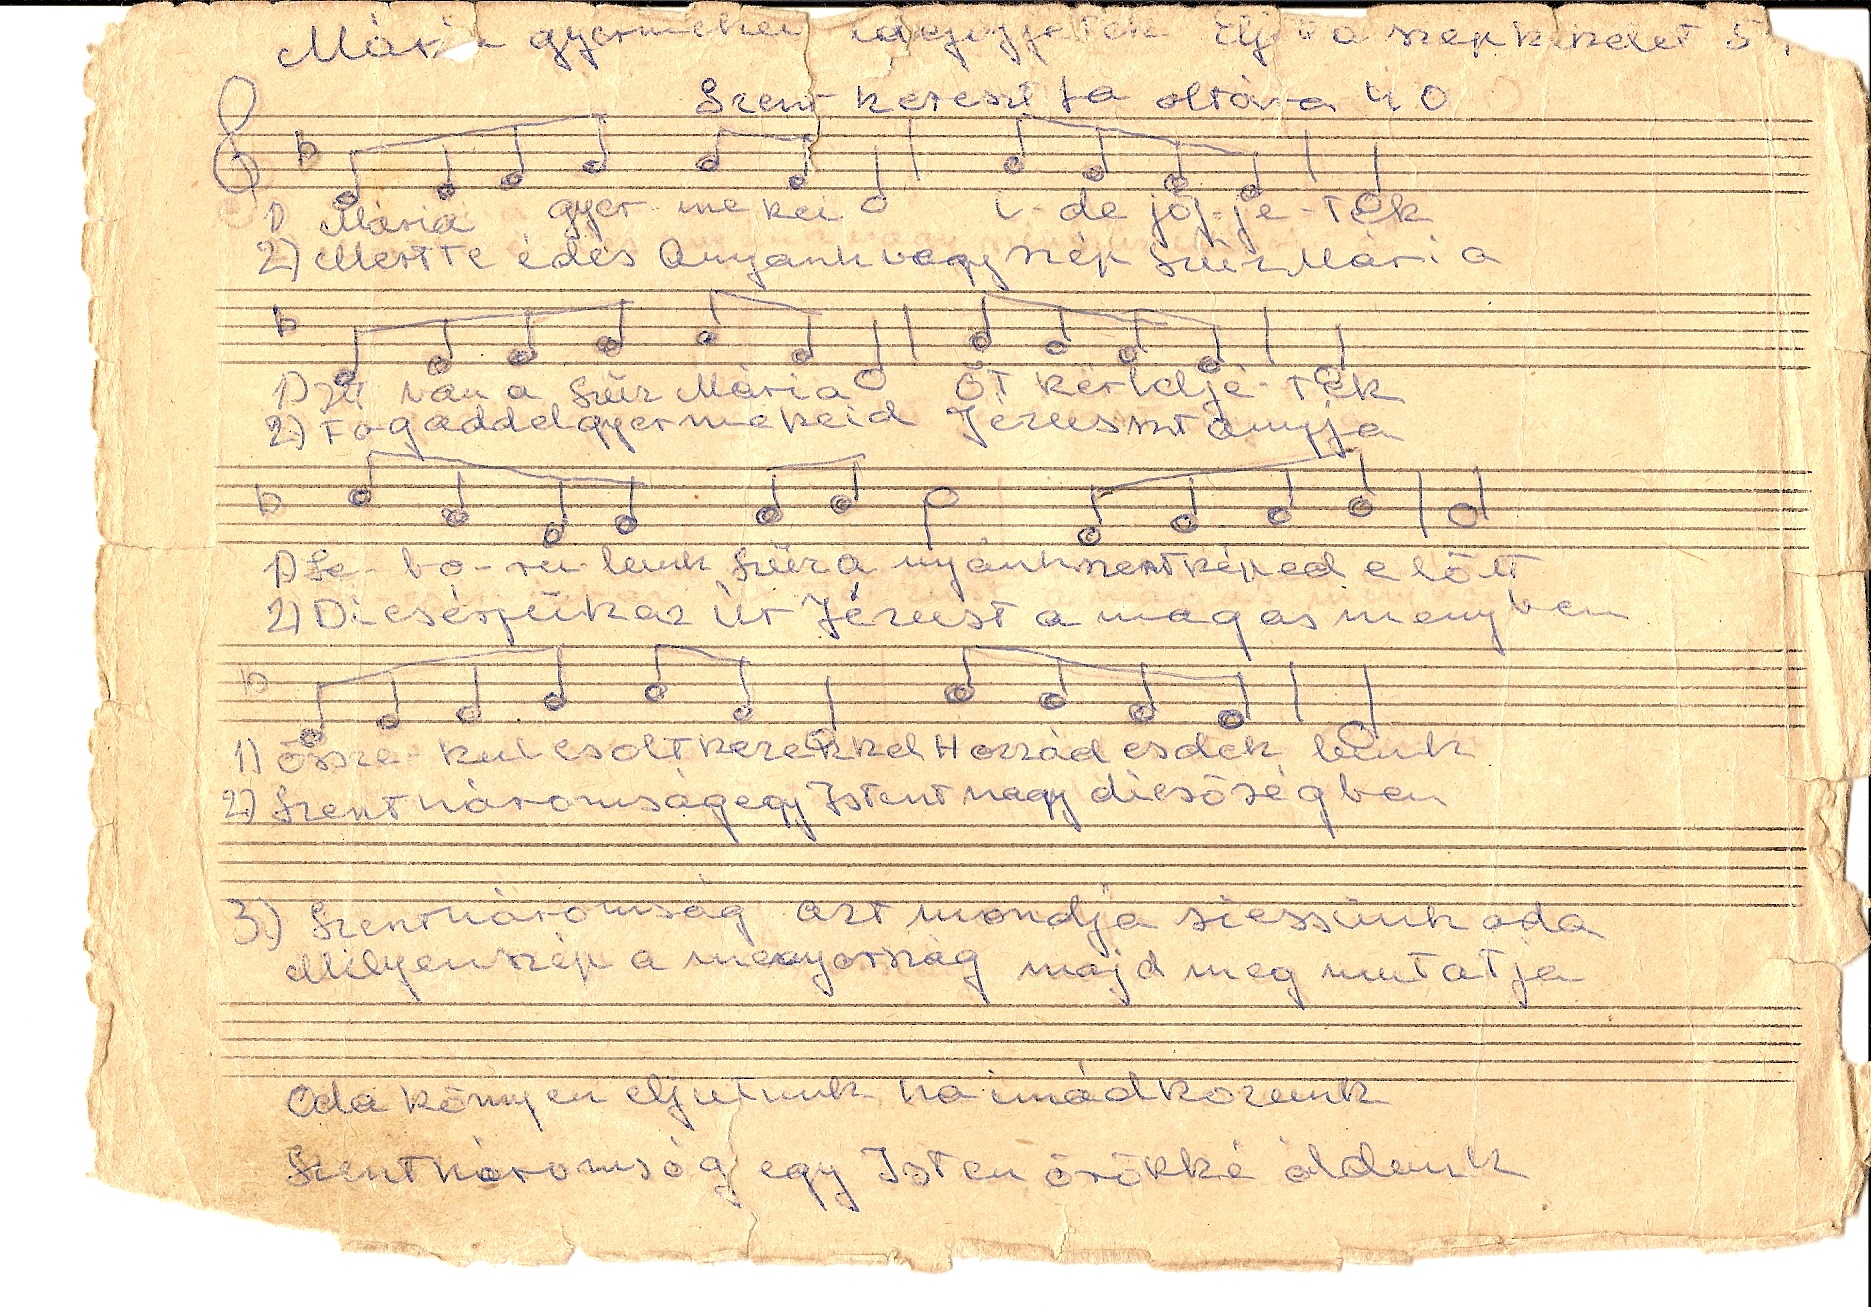 Mária gyermekei idejöjjetek Eljött a szép kikelet 5
Szent kereszt fa oltára 40
1) Mária gyer me kei i-de jöj-je-tek
2) Mert Te édes Anyánk vagy szép Szűz Mária
1) Itt van a Szűz Mária Őt kérldjé-tek
2) Fogaddel gyermekeid Jézus szt anyja
1) Le-bo-ru-lunk Szűz a nyánk szent képed előtt
2) Dicsérjük az Úr Jézust a magas menyben
1) Össze-kulcsolt kezekkel Hozzád esdek lünk
2) Szentháromság egy Istent nagy dicsőségben
3.) Szentháromság azt mondja siessünk oda
Milyen szép a menyország majd meg mutatja
Oda könnyen eljutunk ha imádkozunk
Szentháromság egy Isten örökké áldunk